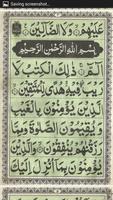 Saving screenshot...
عَلَيْهِمْ وَلَا الضَّآلِّيْنَ
بِسْمِ اللّٰهِ الرَّحْمٰنِ الرَّحِيْمِ
الٓمّٓ ذٰلِكَ الْكِتٰبُ لَا
رَيْبَ فِيْهِ هُدًى لِّلْمُتَّقِيْنَ
الَّذِيْنَ يُؤْمِنُوْنَ بِالْغَيْبِ وَ
يُقِيْمُوْنَ الصَّلٰوةَ وَمِمَّا
رَزَقْنٰهُمْ يُنْفِقُوْنَ وَالَّذِيْنَ
يُؤْمِنُوْنَ بِمَآ اُنْزِلَ اِلَيْكَ